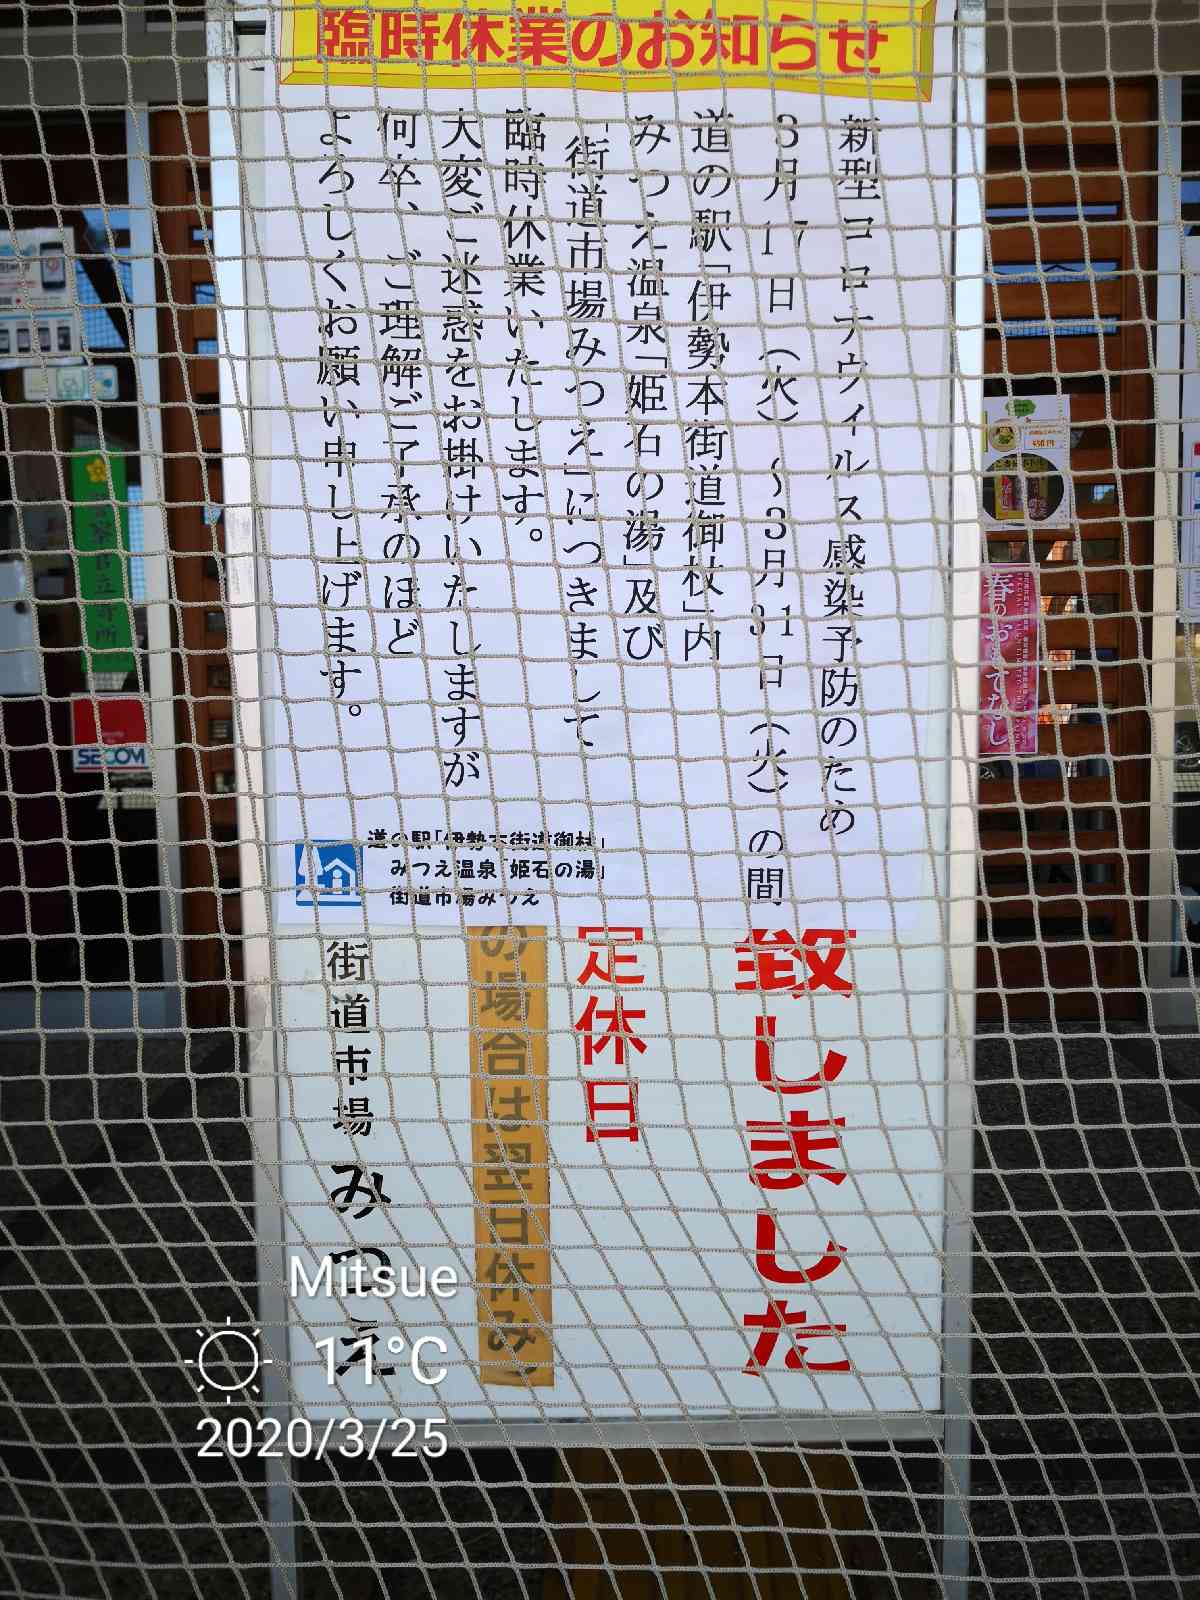 臨時休業のお知らせ
新型コロナウィルス感染予防のため
3月17日（火）～3月31日（火）の間
道の駅「伊勢本街道御杖」内
みつえ温泉「姫石の湯」及び
「街道市場みつえ」につきまして
臨時休業いたします。
大変ご迷惑をお掛けいたしますが
何卒、ご理解ご了承のほど
よろしくお願い申し上げます。
道の駅「伊勢本街道御杖」
みつえ温泉「姫石の湯」
街道市場みつえ
致しました
定休日
の場合は翌日休み
街道市場みつえ
SECOM
春のおもてなし
Mitsue
11°C
2020/3/25